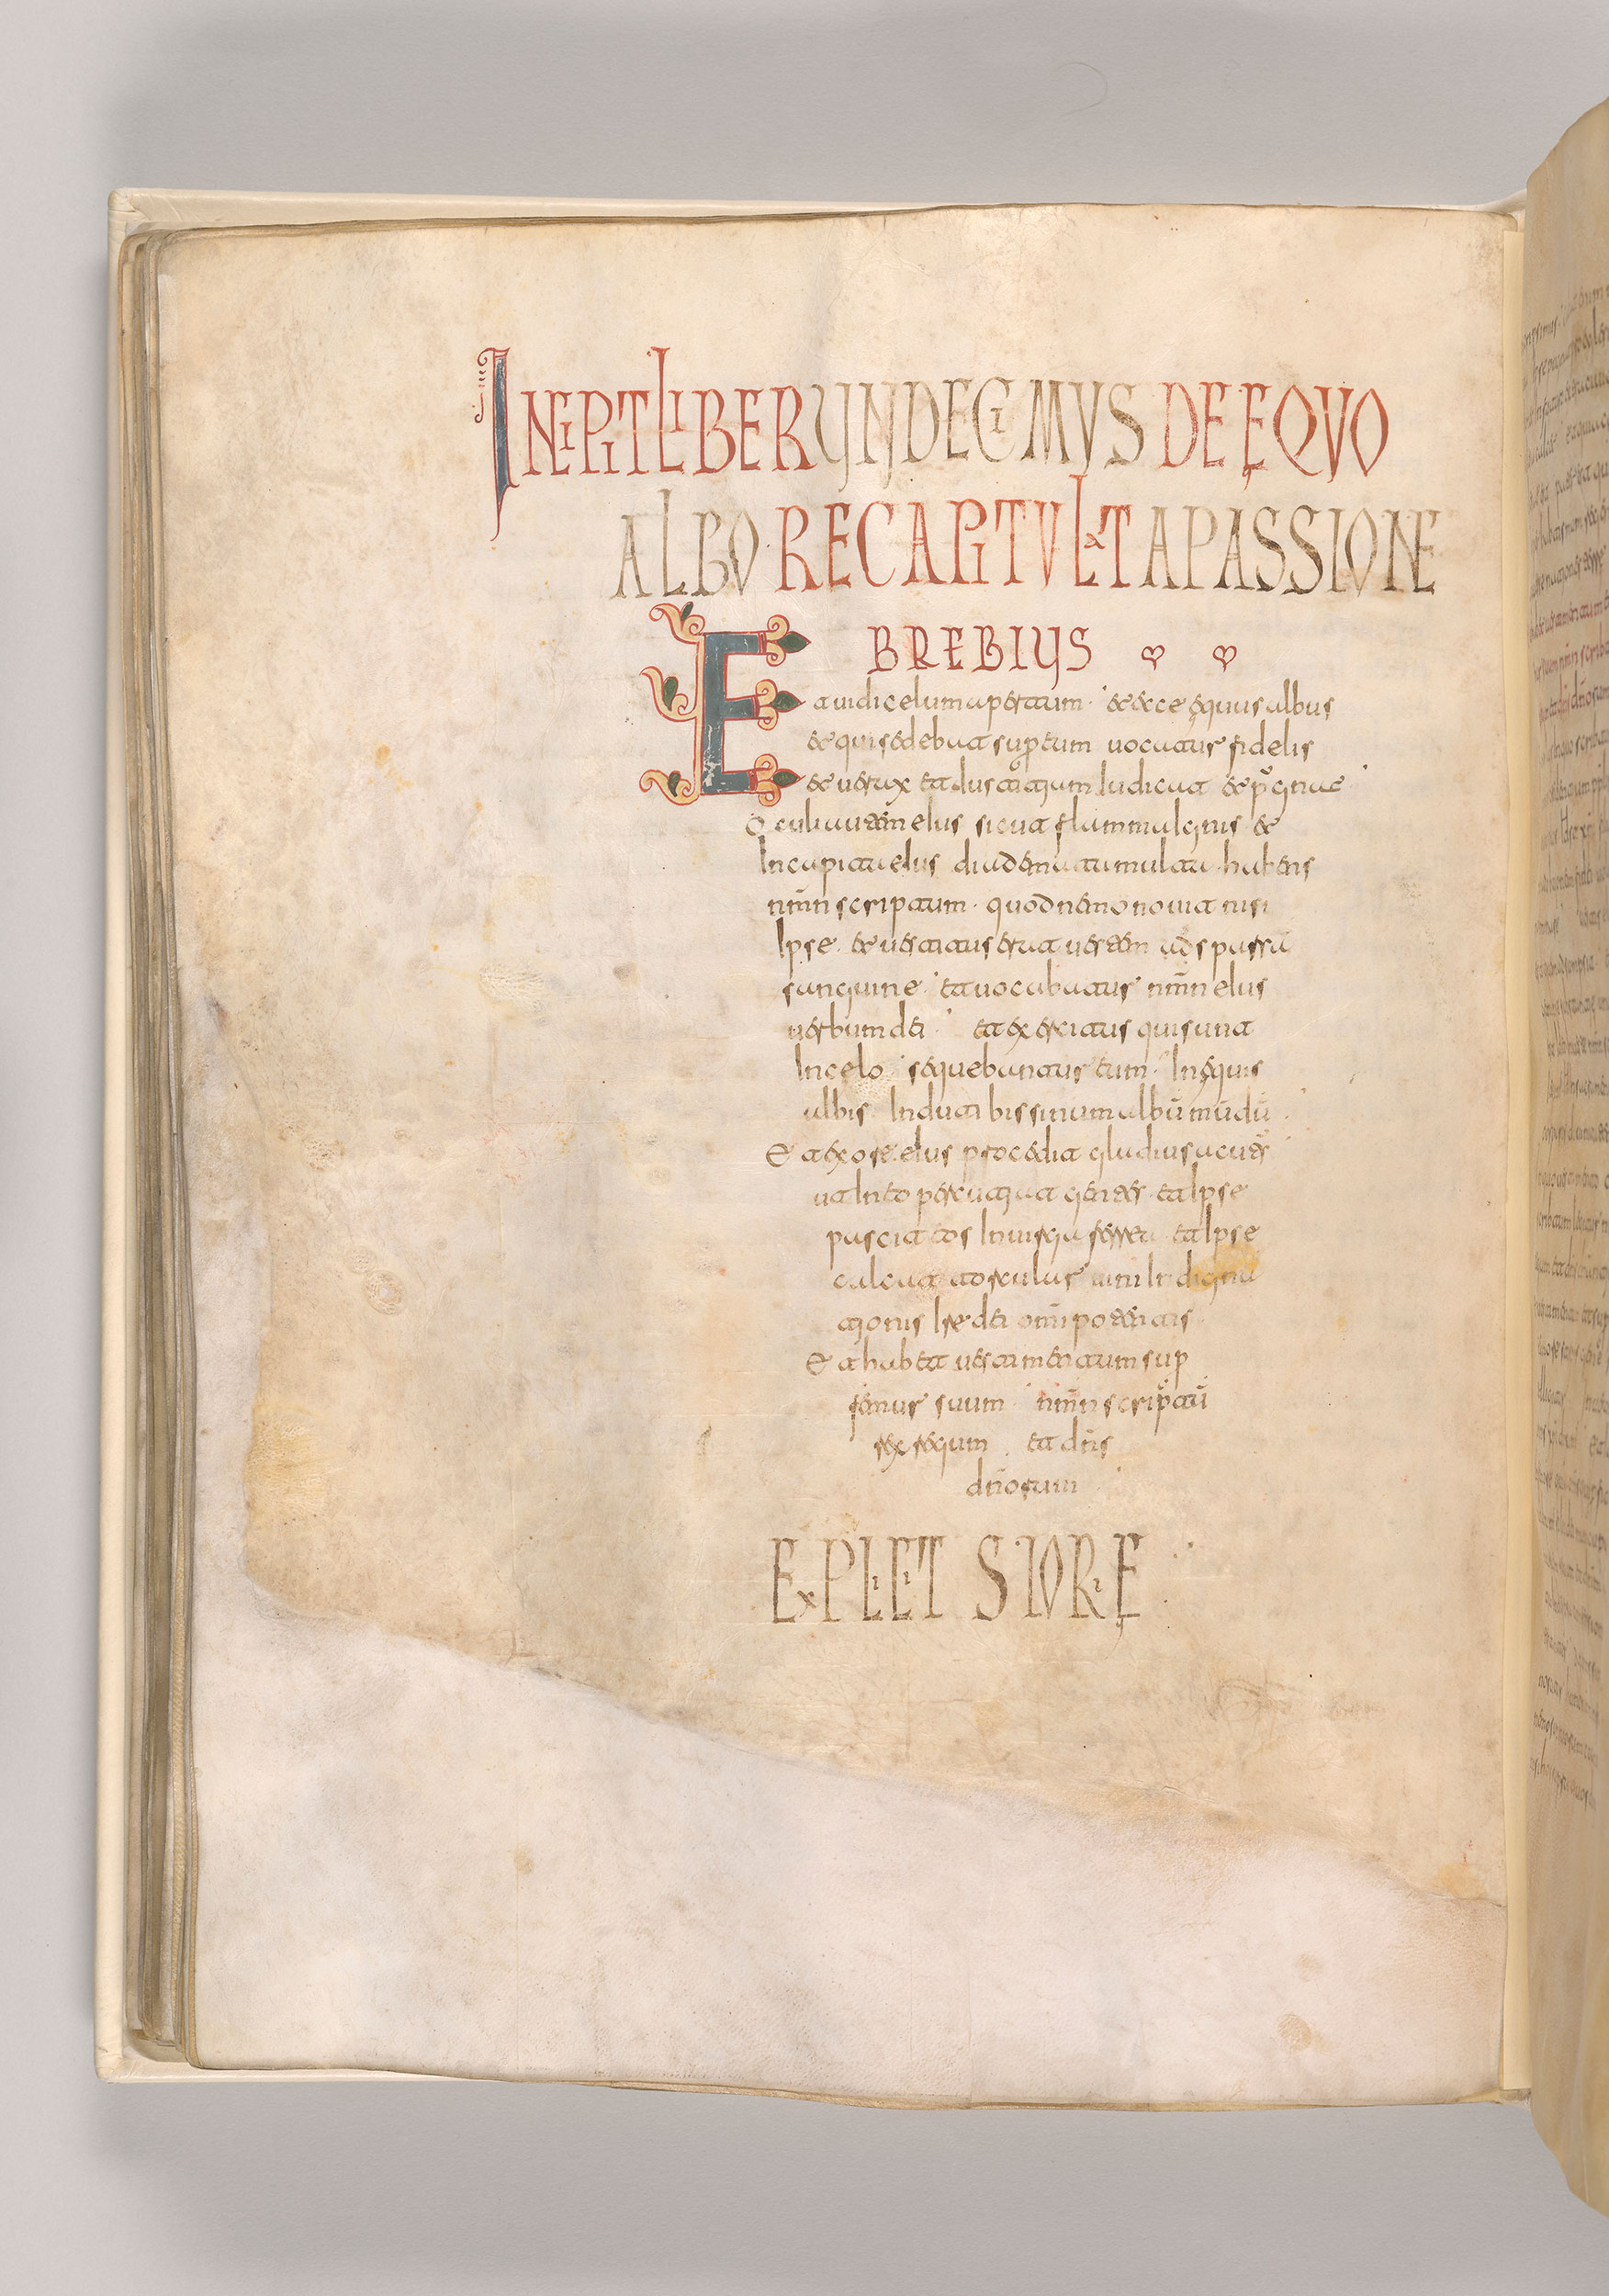 INCIPIT LIBER UNDECIMVS DE EQVO
ALBO RECAPITVLAT A PASSIONE
BREBIUS
Et uidi celum apertum · et ecce equus albus
et qui sedebat super eum uocatur fidelis
et uerax et iustitiam iudicat et pugnat
Oculi autem eius sicut flamma ignis · et
In capite eius diademata multa · habens
nmn scriptum · quod nemo nouit nisi
Ipse · et uestitus erat uestem
sanguine · et uocabatur nmn eius
uerbum dei · et exercitus qui sunt
In celo sequebantur eum · In equis
albis Induti bissinum albū mūdū ·
Et ex ore eius procedit gladius
ut In eo percutiat gentes · et Ipse
pascit eos In uirga ferrea · et Ipse
calcat torcular uini Indigna
tionis Ire dei omnipotentis
Et habet uestimentum sup
femur suum · nmn scriptū
rex regum · et dns
dnorum
EXPLICIT STORIE